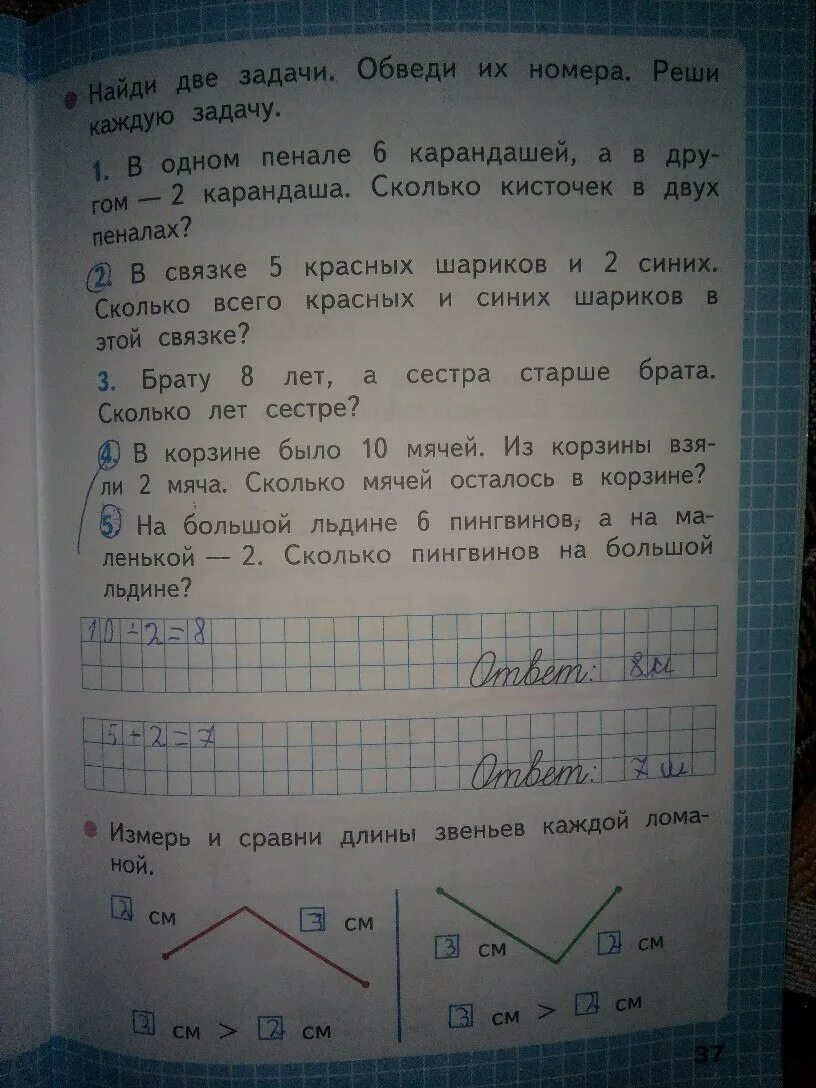 Найди две задачи. Обведи их номера. Реши
каждую задачу.
1. В одном пенале 6 карандашей, а в дру-
гом — 2 карандаша. Сколько кисточек в двух
пеналах?
2. В связке 5 красных шариков и 2 синих.
Сколько всего красных и синих шариков в
этой связке?
3. Брату 8 лет, а сестра старше брата.
Сколько лет сестре?
4. В корзине было 10 мячей. Из корзины взя-
ли 2 мяча. Сколько мячей осталось в корзине?
5. На большой льдине 6 пингвинов, а на ма-
ленькой — 2. Сколько пингвинов на большой
льдине?
10-2=8
Ответ: 8м
5+2=7
Ответ: 7 ш
Измерь и сравни длины звеньев каждой лома-
ной.
2 см 3 см
3 см 2 см
3 см > 2 см
3 см > 2 см
37